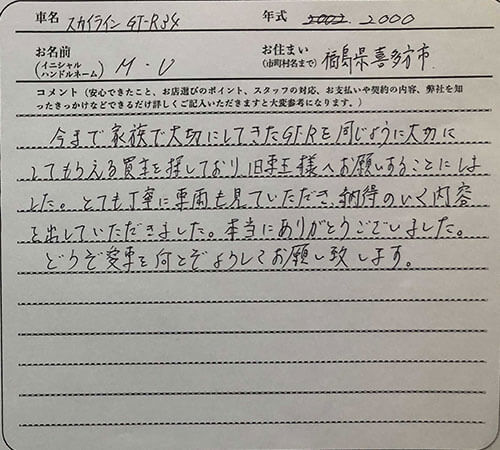 車名 スカイライン GT-R34 年式 2002. 2000
お名前 (イニシャル ハンドルネーム) M・U お住まい (市町村名まで) 福島県喜多方市
コメント(安心できたこと、お店選びのポイント、スタッフの対応、お支払いや契約の内容、弊社を知
ったきっかけなどできるだけ詳しくご記入いただきますと大変参考になります。)
今まで家族で大切にしてきたGT-Rを同じように大切に
してもらえる買主を探しており、旧車王様へお願いすることにしま
した。とても丁寧に車両も見ていただき、納得のいく内容
を出していただきました。本当にありがとうございました。
どうぞ愛車を何とぞよろしくお願い致します。